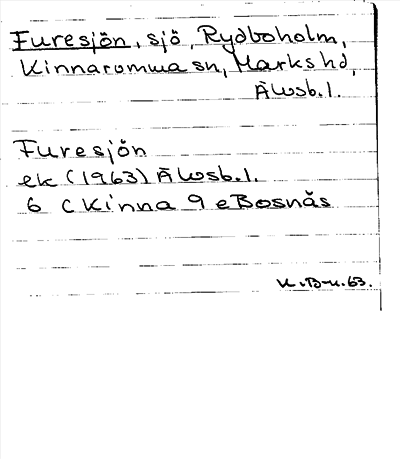 Furesjön, sjö, Rydboholm,
Kinnarumma sn, Marks hd,
Älvsb. l.
Furesjön
ek (1963) Älvsb. l.
6 C Kinna 9 e Bosnäs